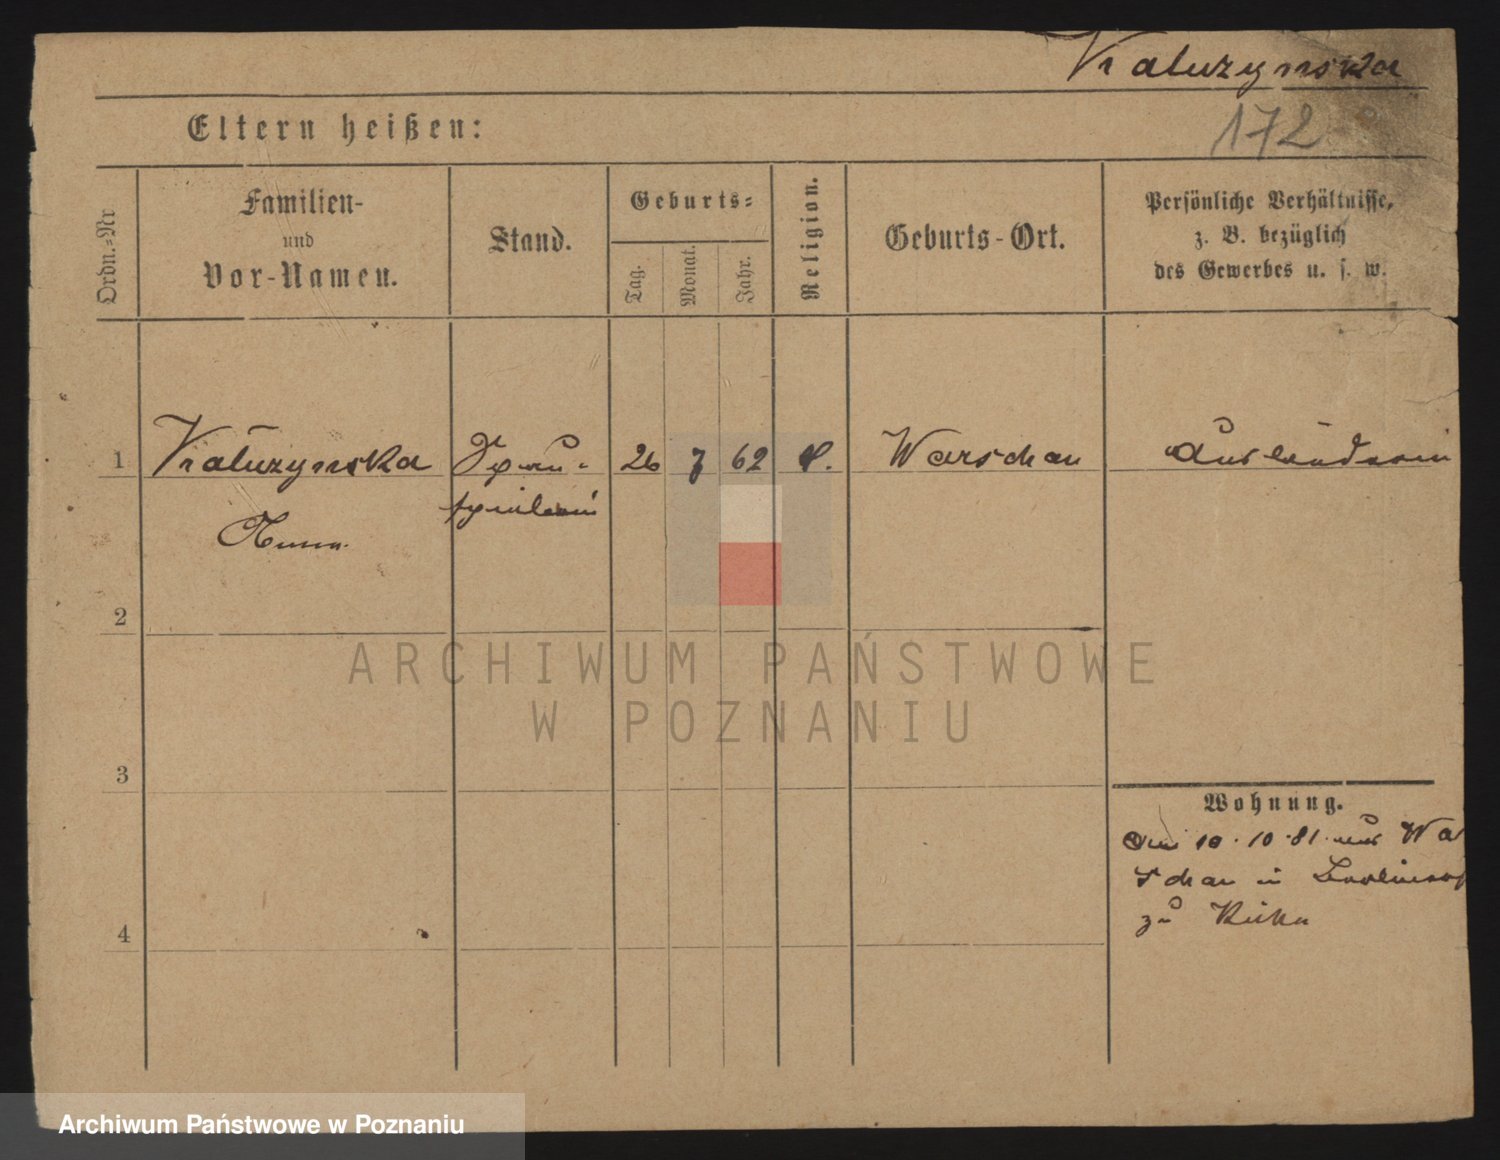 Kaluzynska
172
Eltern heißen:
Ordn.=Nr
Familien-
und
Vor-Namen.
Stand.
Geburts=
Tag.
Monat.
Jahr.
Religion.
Geburts-Ort.
Persönliche Verhältnisse,
z. B. bezüglich
des Gewerbes u. s. w.
1 Kaluzynska Schau- 26 7 62 Warschau Ausländerin
spielerin
Anna.
2
3
4
Wohnung.
Am 10.10.81. aus War
schau in
zu
ARCHIWUM PAŃSTWOWE
W POZNANIU
Archiwum Państwowe w Poznaniu